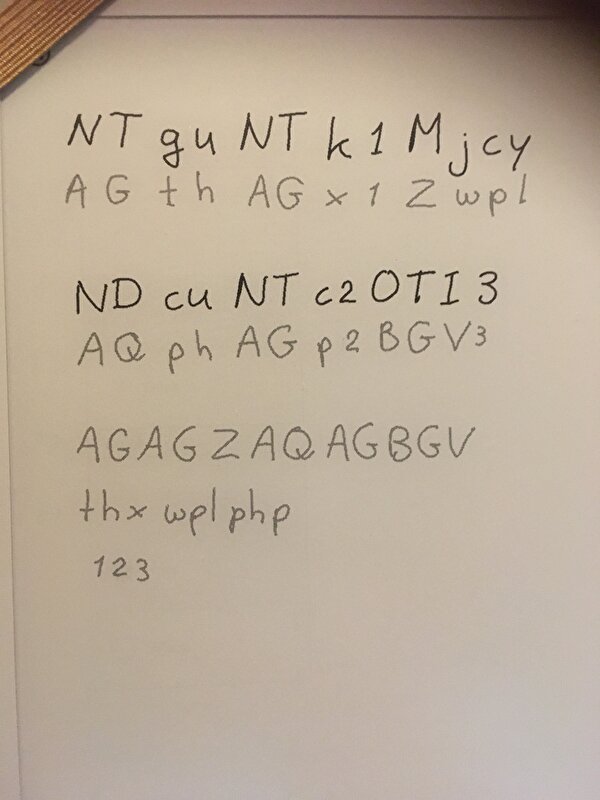 NT gu NT k 1 M jcy
AG th AG x 1 Z wpl
ND cu NT c2 OTI 3
AQ ph AG p2 BGV3
AGAGZAQAGBGV
thx wplphp
123